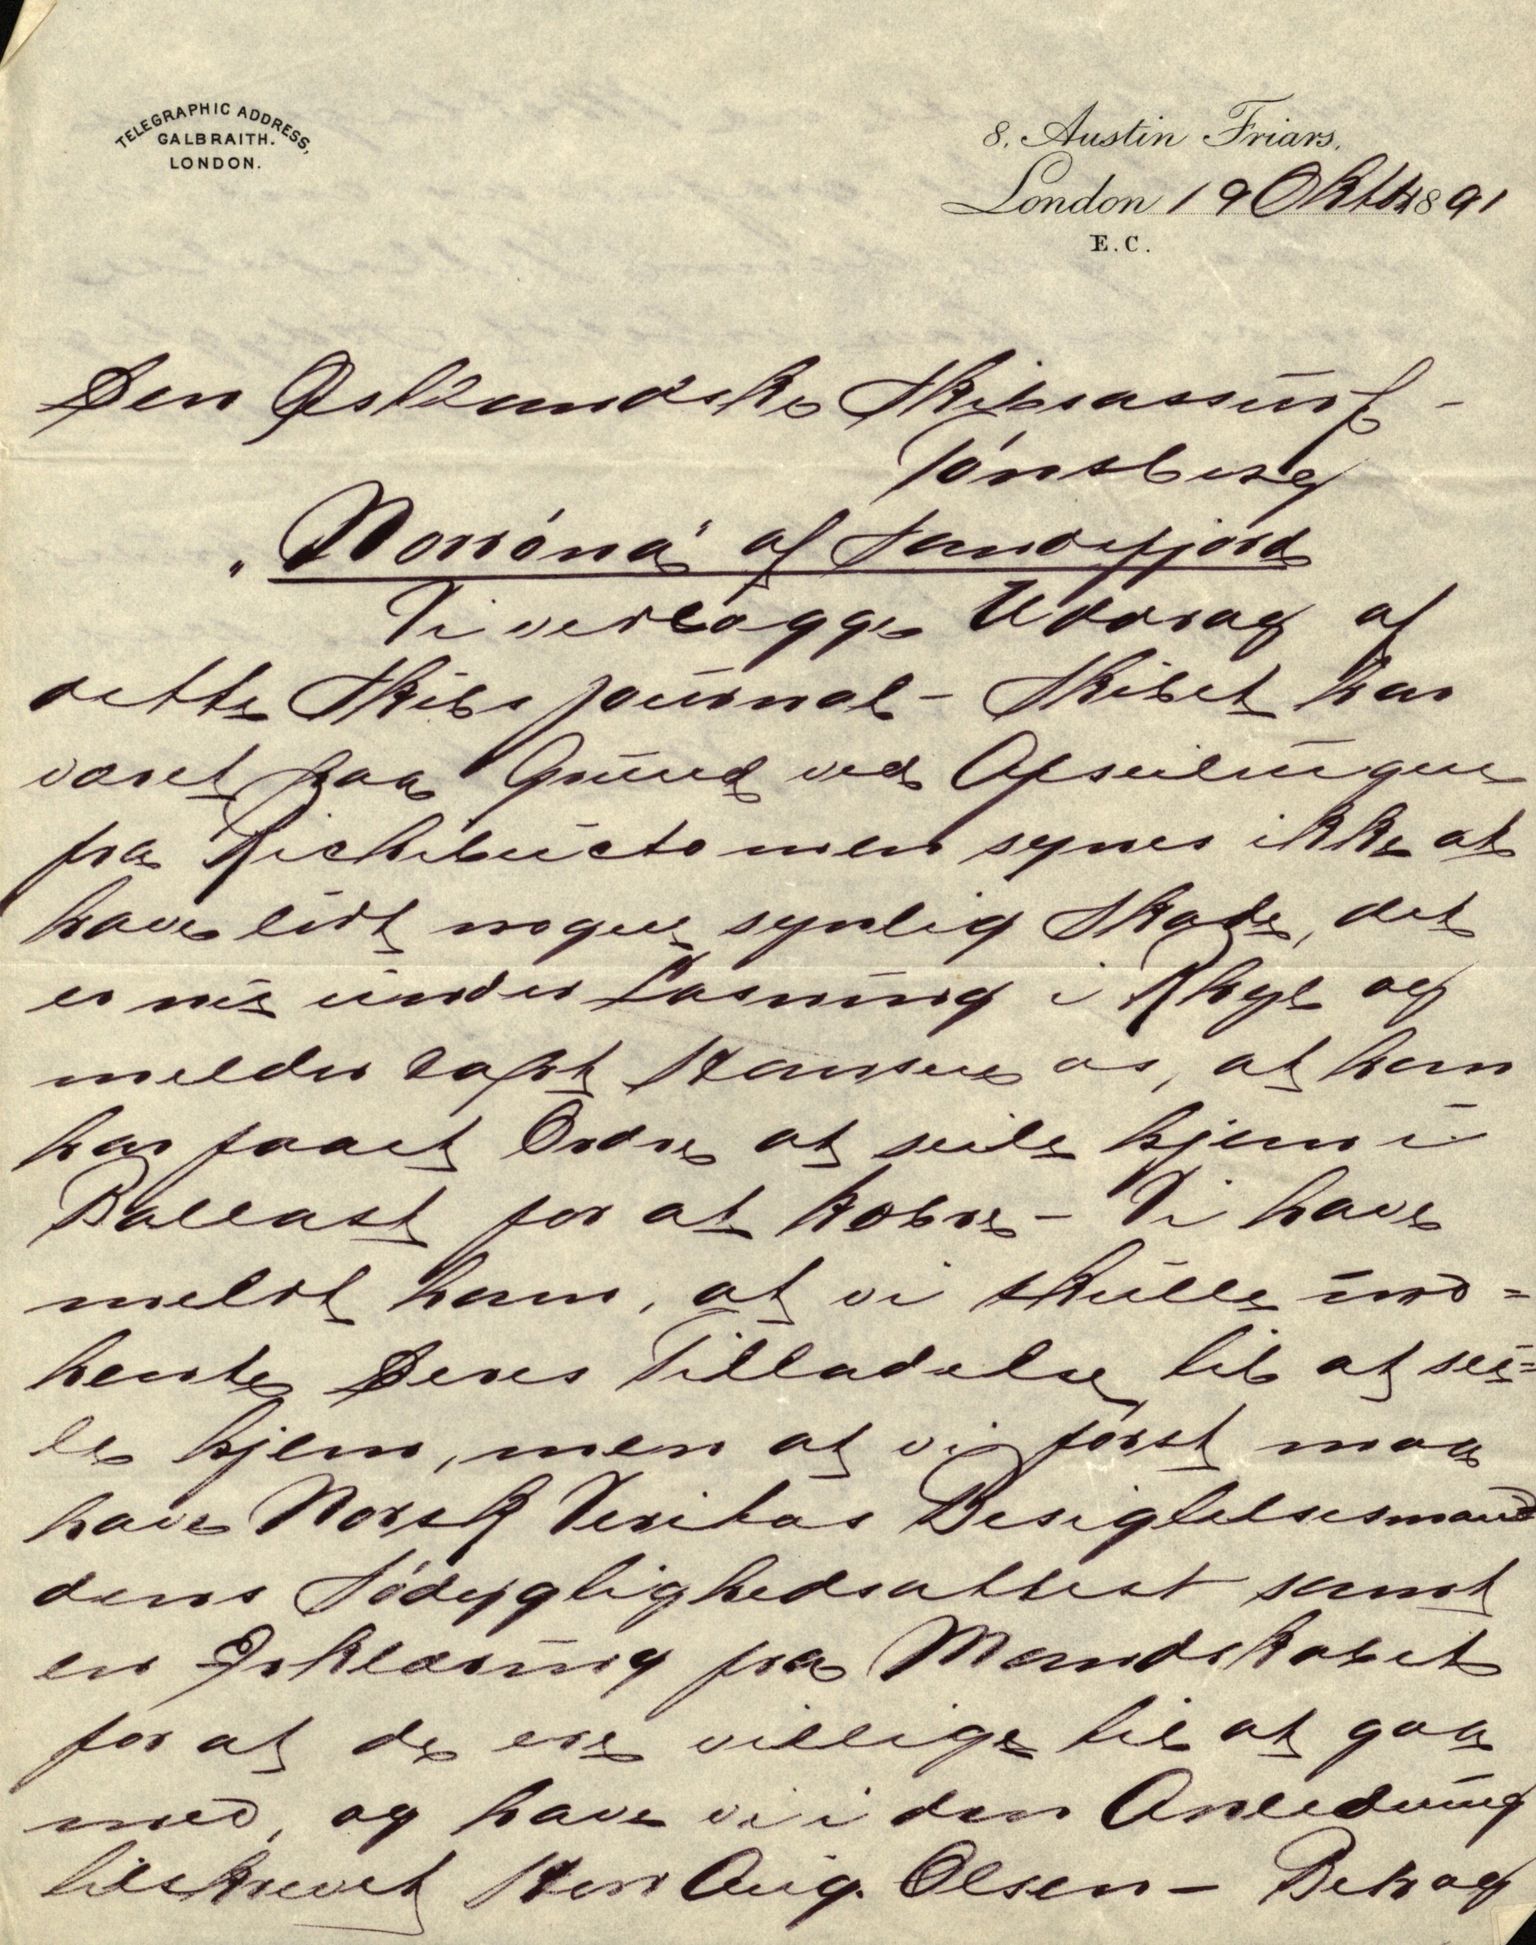 TELEGRAPHIC ADDRESS,
GALBRAITH.
LONDON.
8, Austin Friars,
London 19 Oktbr 1891
E.C.
Den Østlandske Skibsassurf -
Tønsberg
"Norrøna" af Sandefjord
Vi vedlægge Uddrag af
dette Skibs Journal - Skibet har
været paa Grund ved Afseilingen
fra Richibucto men synes ikke at
have lidt nogen synlig Skade, det
er nu under Losning i Rhyl og
melder Capt Hansen os, at han
har faaet Ordre at seile hjem i
Ballast for at kobre - Vi have
meldt ham, at vi skulle ind=
hente Deres Tilladelse til at sei=
le hjem, men at vi først maa
have Norsk Veritas Besigtelsesmand
dens Sødygtighedsattest samt
en Erklæring fra Mandskabet
for at de ere villige til at gaa
med, og have vi i den Anledning
tilskrevet Herr Aug. Olsen - Betrag